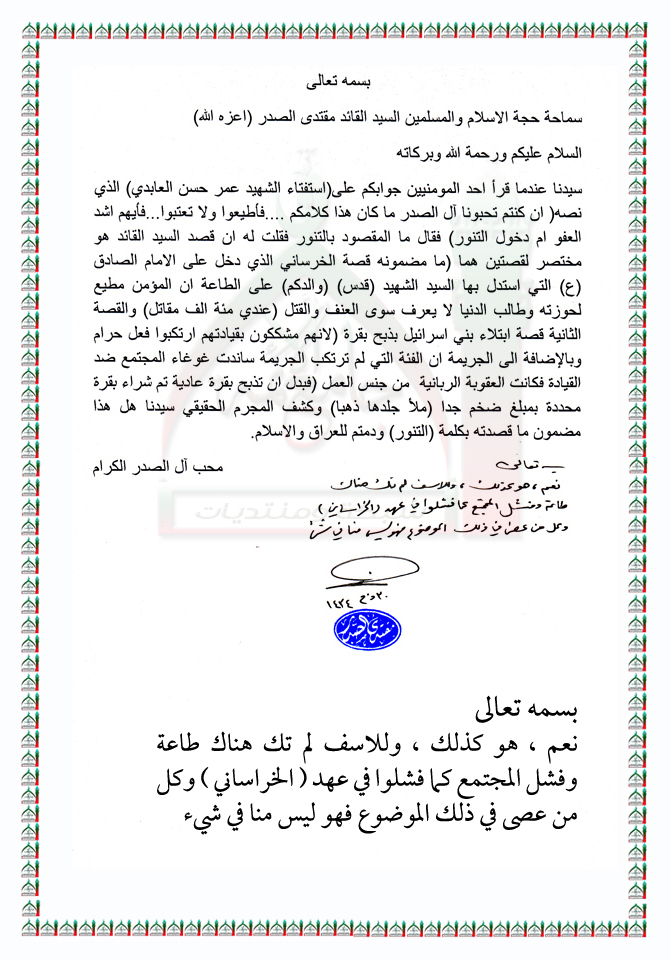 بسمه تعالى
سماحة حجة الاسلام والمسلمين السيد القائد مقتدى الصدر (اعزه الله)
السلام عليكم ورحمة الله وبركاته
سيدنا عندما قرأ احد المومنيين جوابكم على(استفتاء الشهيد عمر حسن العابدي) الذي
نصه( ان كنتم تحبونا آل الصدر ما كان هذا كلامكم ....فأطيعوا ولا تعتبوا...فأيهم اشد
العفو ام دخول التنور) فقال ما المقصود بالتنور فقلت له ان قصد السيد القائد هو
مختصر لقصتين هما (ما مضمونه قصة الخرساني الذي دخل على الامام الصادق
(ع) التي استدل بها السيد الشهيد (قدس) (والدكم) على الطاعة ان المؤمن مطيع
لحوزته وطالب الدنيا لا يعرف سوى العنف والقتل (عندي مئة الف مقاتل) والقصة
الثانية قصة ابتلاء بني اسرائيل بذبح بقرة (لانهم مشككون بقيادتهم ارتكبوا فعل حرام
وبالإضافة الى الجريمة ان الفئة التي لم ترتكب الجريمة ساندت غوغاء المجتمع ضد
القيادة فكانت العقوبة الربانية من جنس العمل (فبدل ان تذبح بقرة عادية تم شراء بقرة
محددة بمبلغ ضخم جدا (ملأ جلدها ذهبا) وكشف المجرم الحقيقي سيدنا هل هذا
مضمون ما قصدته بكلمة (التنور) ودمتم للعراق والاسلام.
محب آل الصدر الكرام
بسمه تعالى
نعم ، هو كذلك ، وللاسف لم تك هناك
طاعة وفشل المجتمع كما فشلوا في عهد (الخراساني)
وكل من عصى في ذلك الموضوع فهو ليس منا في شيء
١٤٣٤
مقتدى الصدر
منتديات
بسمه تعالى
نعم ، هو كذلك ، وللاسف لم تك هناك طاعة
وفشل المجتمع كما فشلوا في عهد ( الخراساني ) وكل
من عصى في ذلك الموضوع فهو ليس منا في شيء